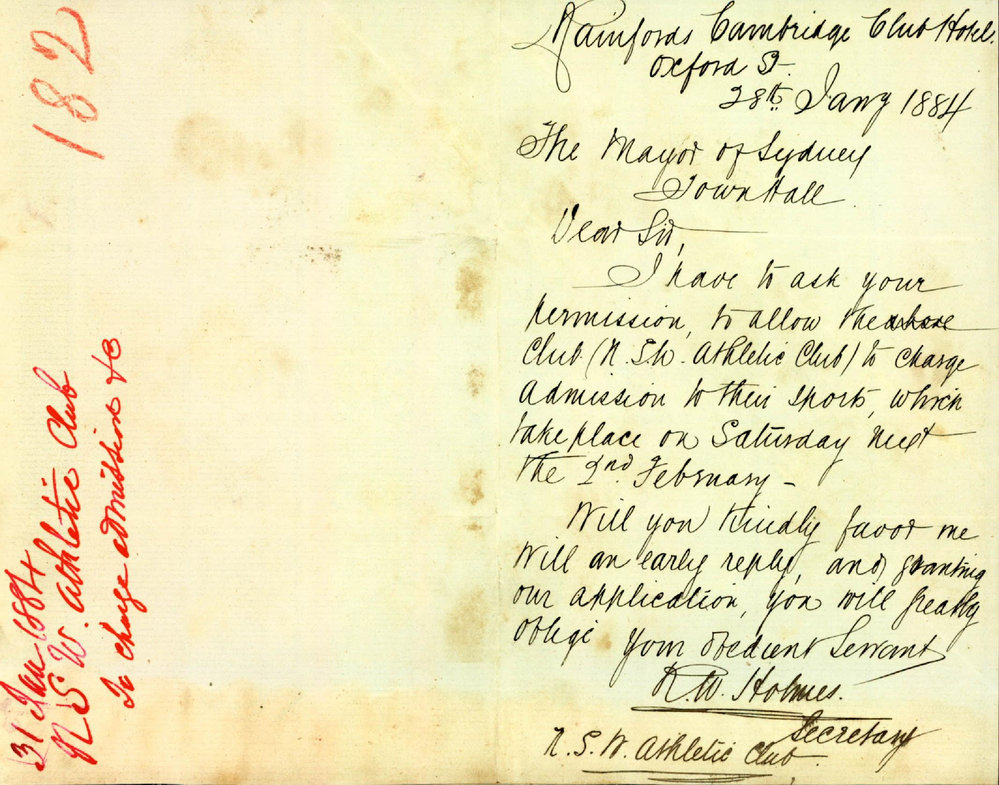 182
31 Jan 1884
N S W. Athletic Club
To charge admission &c
Rainfords Cambridge Club Hotel.
Oxford St.
28th. Jany 1884
The Mayor of Sydney
Town Hall
Dear Sir,
I have to ask your
permission, to allow the above
Club (N.S.W. Athletic Club) to charge
admission to their sports, which
take place on Saturday next
the 2nd February -
Will you kindly favor me
will an early reply, and granting
our application, you will greatly
oblige your obedient Servant
R. W. Holmes.
Secretary
N. S. W. Athletic Club.